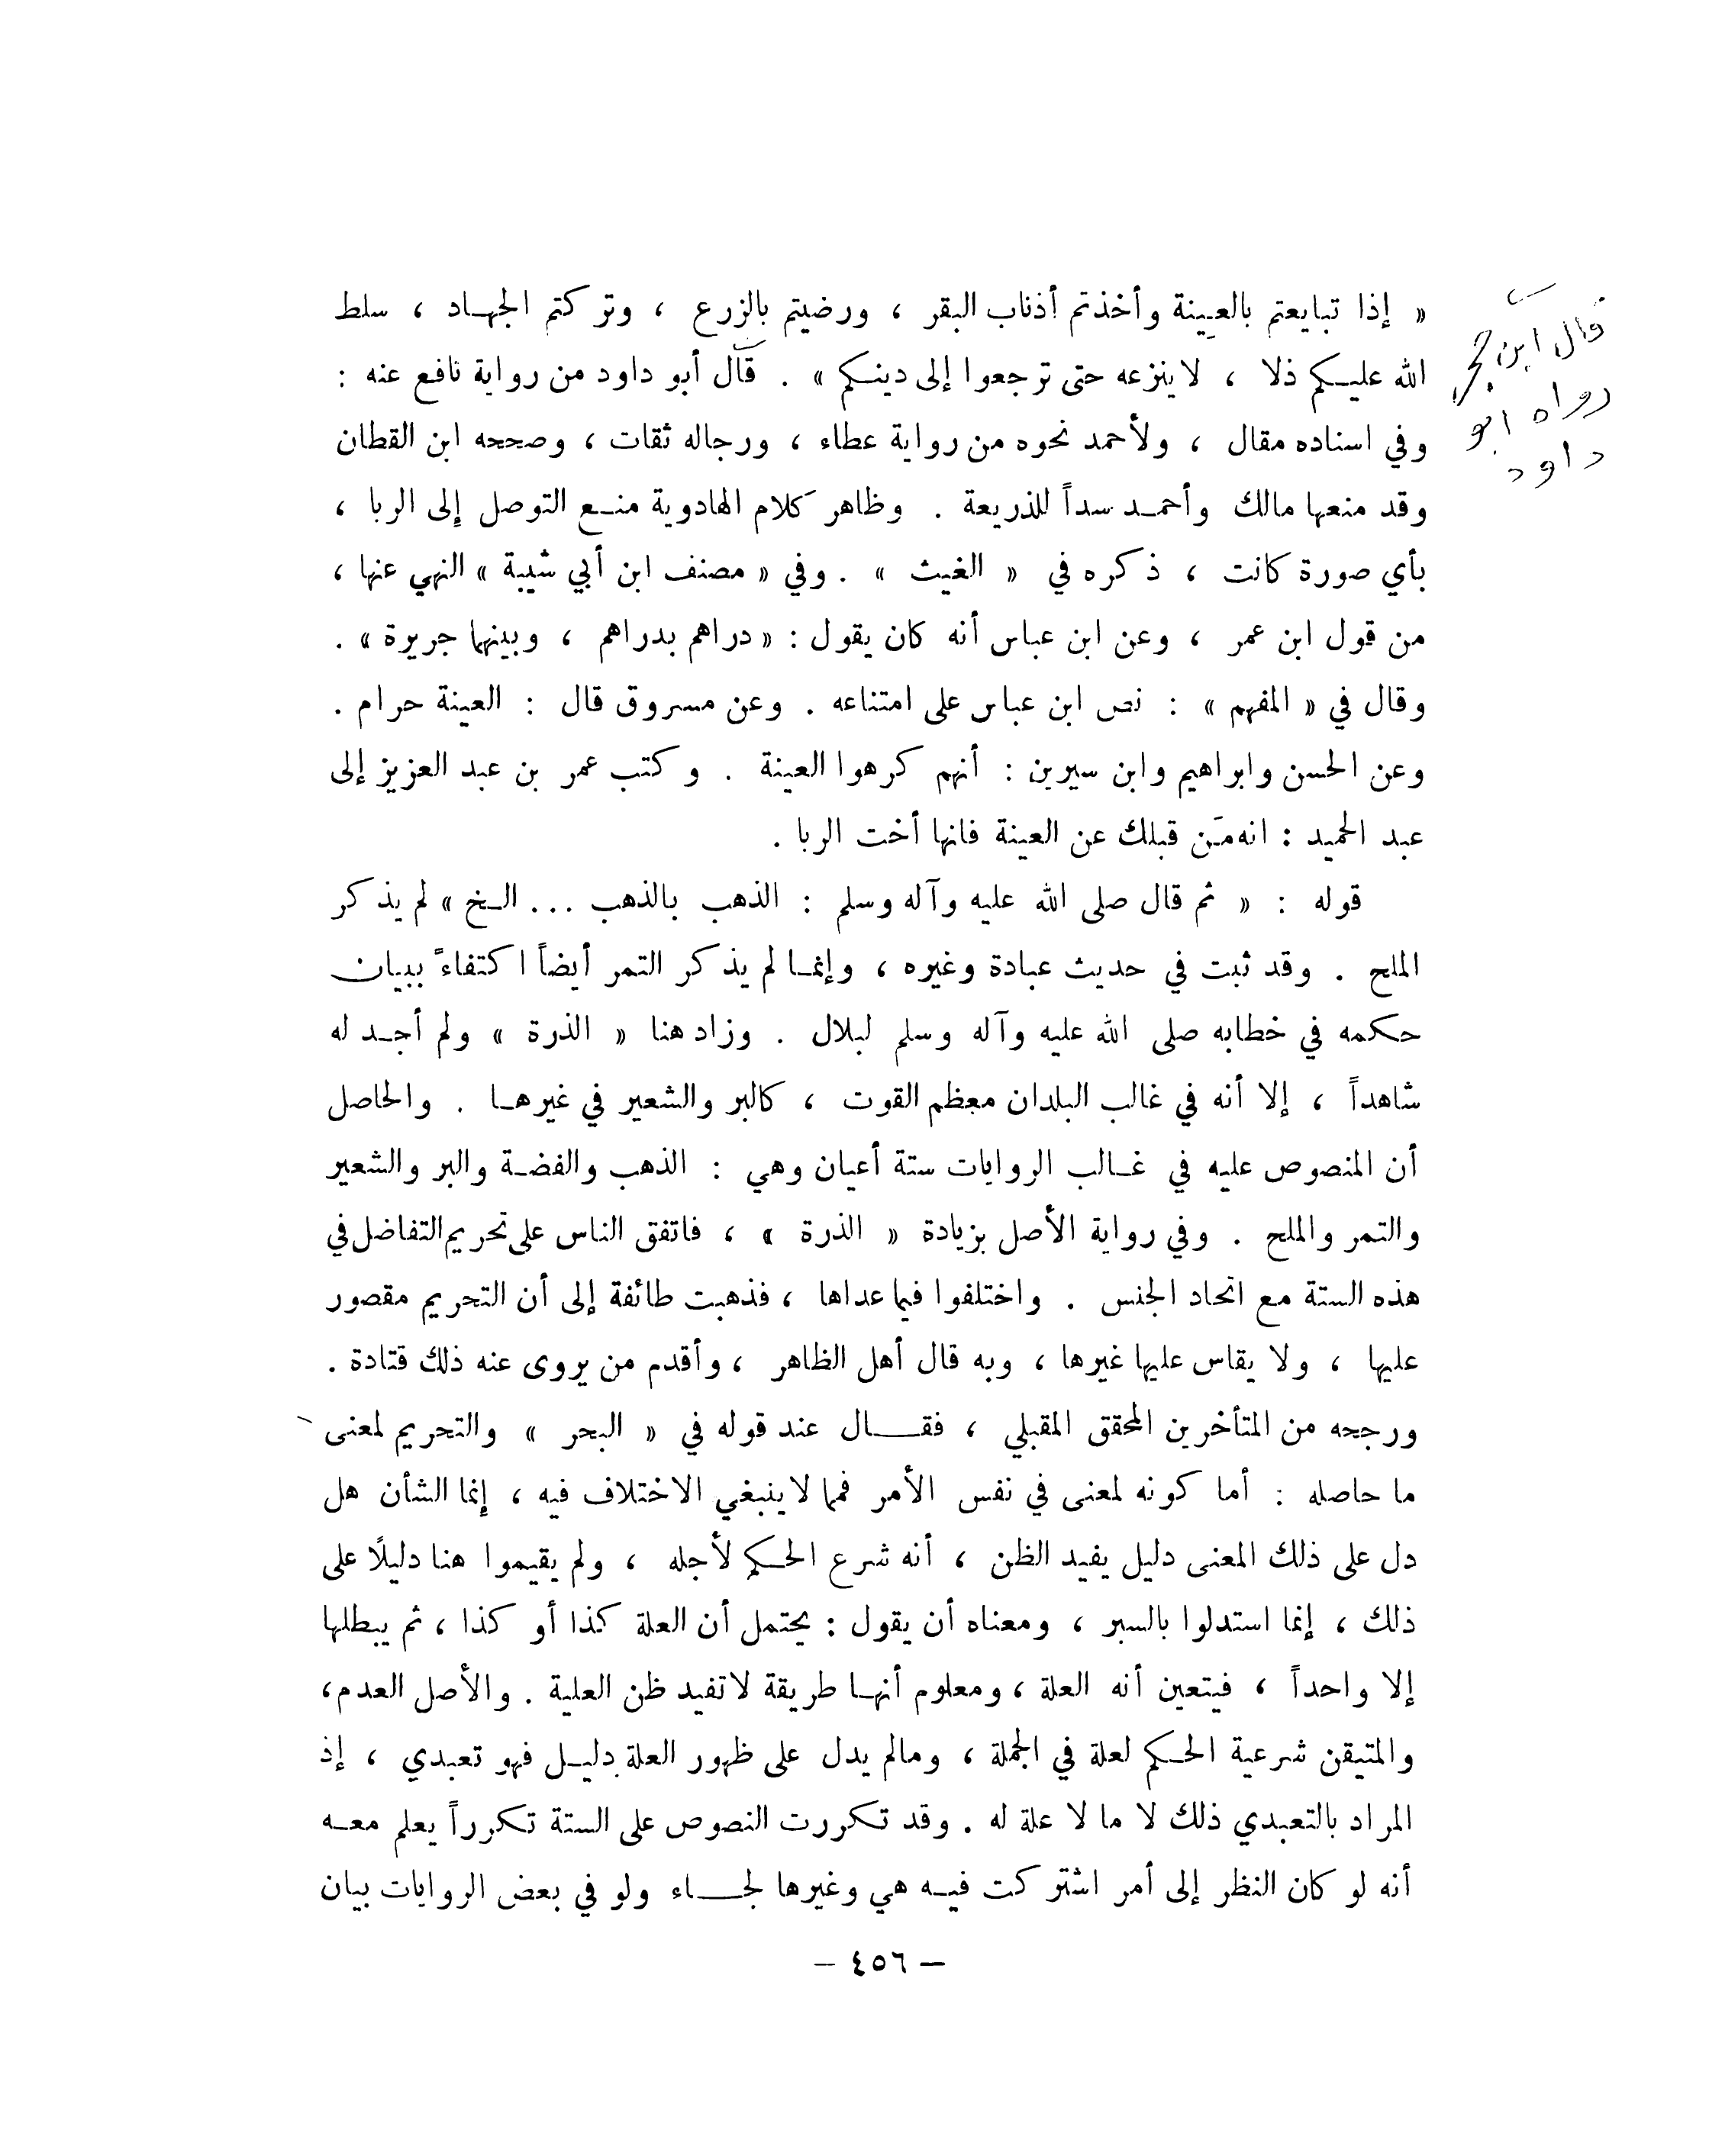 « إذا تبايعتم بالعينة وأخذتم أذناب البقر ، ورضيتم بالزرع ، وتركتم الجهاد ، سلط
الله عليكم ذلا ، لا ينزعه حتى ترجعوا إلى دينكم » . قال أبو داود من رواية نافع عنه :
وفي اسناده مقال ، ولأحمد نحوه من رواية عطاء ، ورجاله ثقات ، وصححه ابن القطان
وقد منعها مالك وأحمد سداً للذريعة . وظاهر كلام الهادوية منع التوصل إلى الربا ،
بأي صورة كانت ، ذكره في « الغيث » . وفي « مصنف ابن أبي شيبة » النهي عنها ،
من قول ابن عمر ، وعن ابن عباس أنه كان يقول : « دراهم بدراهم ، وبينهما جريرة » .
وقال في « المفهم » : نص ابن عباس على امتناعه . وعن مسروق قال : العينة حرام .
وعن الحسن وابراهيم وابن سيرين : أنهم كرهوا العينة . وكتب عمر بن عبد العزيز إلى
عبد الحميد : انه مَن قبلك عن العينة فانها أخت الربا .
قوله : « ثم قال صلى الله عليه وآله وسلم : الذهب بالذهب ... الخ » لم يذكر
الملح . وقد ثبت في حديث عبادة وغيره ، وإنما لم يذكر التمر أيضاً اكتفاءً ببيان
حكمه في خطابه صلى الله عليه وآله وسلم لبلال . وزاد هنا « الذرة » ولم أجد له
شاهداً ، إلا أنه في غالب البلدان معظم القوت ، كالبر والشعير في غيرها . والحاصل
أن المنصوص عليه في غالب الروايات ستة أعيان وهي : الذهب والفضة والبر والشعير
والتمر والملح . وفي رواية الأصل بزيادة « الذرة » ، فاتفق الناس على تحريم التفاضل في
هذه الستة مع اتحاد الجنس . واختلفوا فيما عداها ، فذهبت طائفة إلى أن التحريم مقصور
عليها ، ولا يقاس عليها غيرها ، وبه قال أهل الظاهر ، وأقدم من يروى عنه ذلك قتادة .
ورجحه من المتأخرين المحقق المقبلي ، فقال عند قوله في « البحر » والتحريم لمعنى
ما حاصله : أما كونه لمعنى في نفس الأمر فمما لا ينبغي الاختلاف فيه ، إنما الشأن هل
دل على ذلك المعنى دليل يفيد الظن ، أنه شرع الحكم لأجله ، ولم يقيموا هنا دليلًا على
ذلك ، إنما استدلوا بالسبر ، ومعناه أن يقول : يحتمل أن العلة كذا أو كذا ، ثم يبطلها
إلا واحداً ، فيتعين أنه العلة ، ومعلوم أنها طريقة لا تفيد ظن العلية . والأصل العدم ،
والمتيقن شرعية الحكم لعلة في الجملة ، ومالم يدل على ظهور العلة دليل فهو تعبدي ، إذ
المراد بالتعبدي ذلك لا ما لا علة له . وقد تكررت النصوص على الستة تكرراً يعلم معه
أنه لو كان النظر إلى أمر اشتركت فيه هي وغيرها لجاء ولو في بعض الروايات بيان
— ٤٥٦ —
قال ابن حجر
رواه ابو
داود